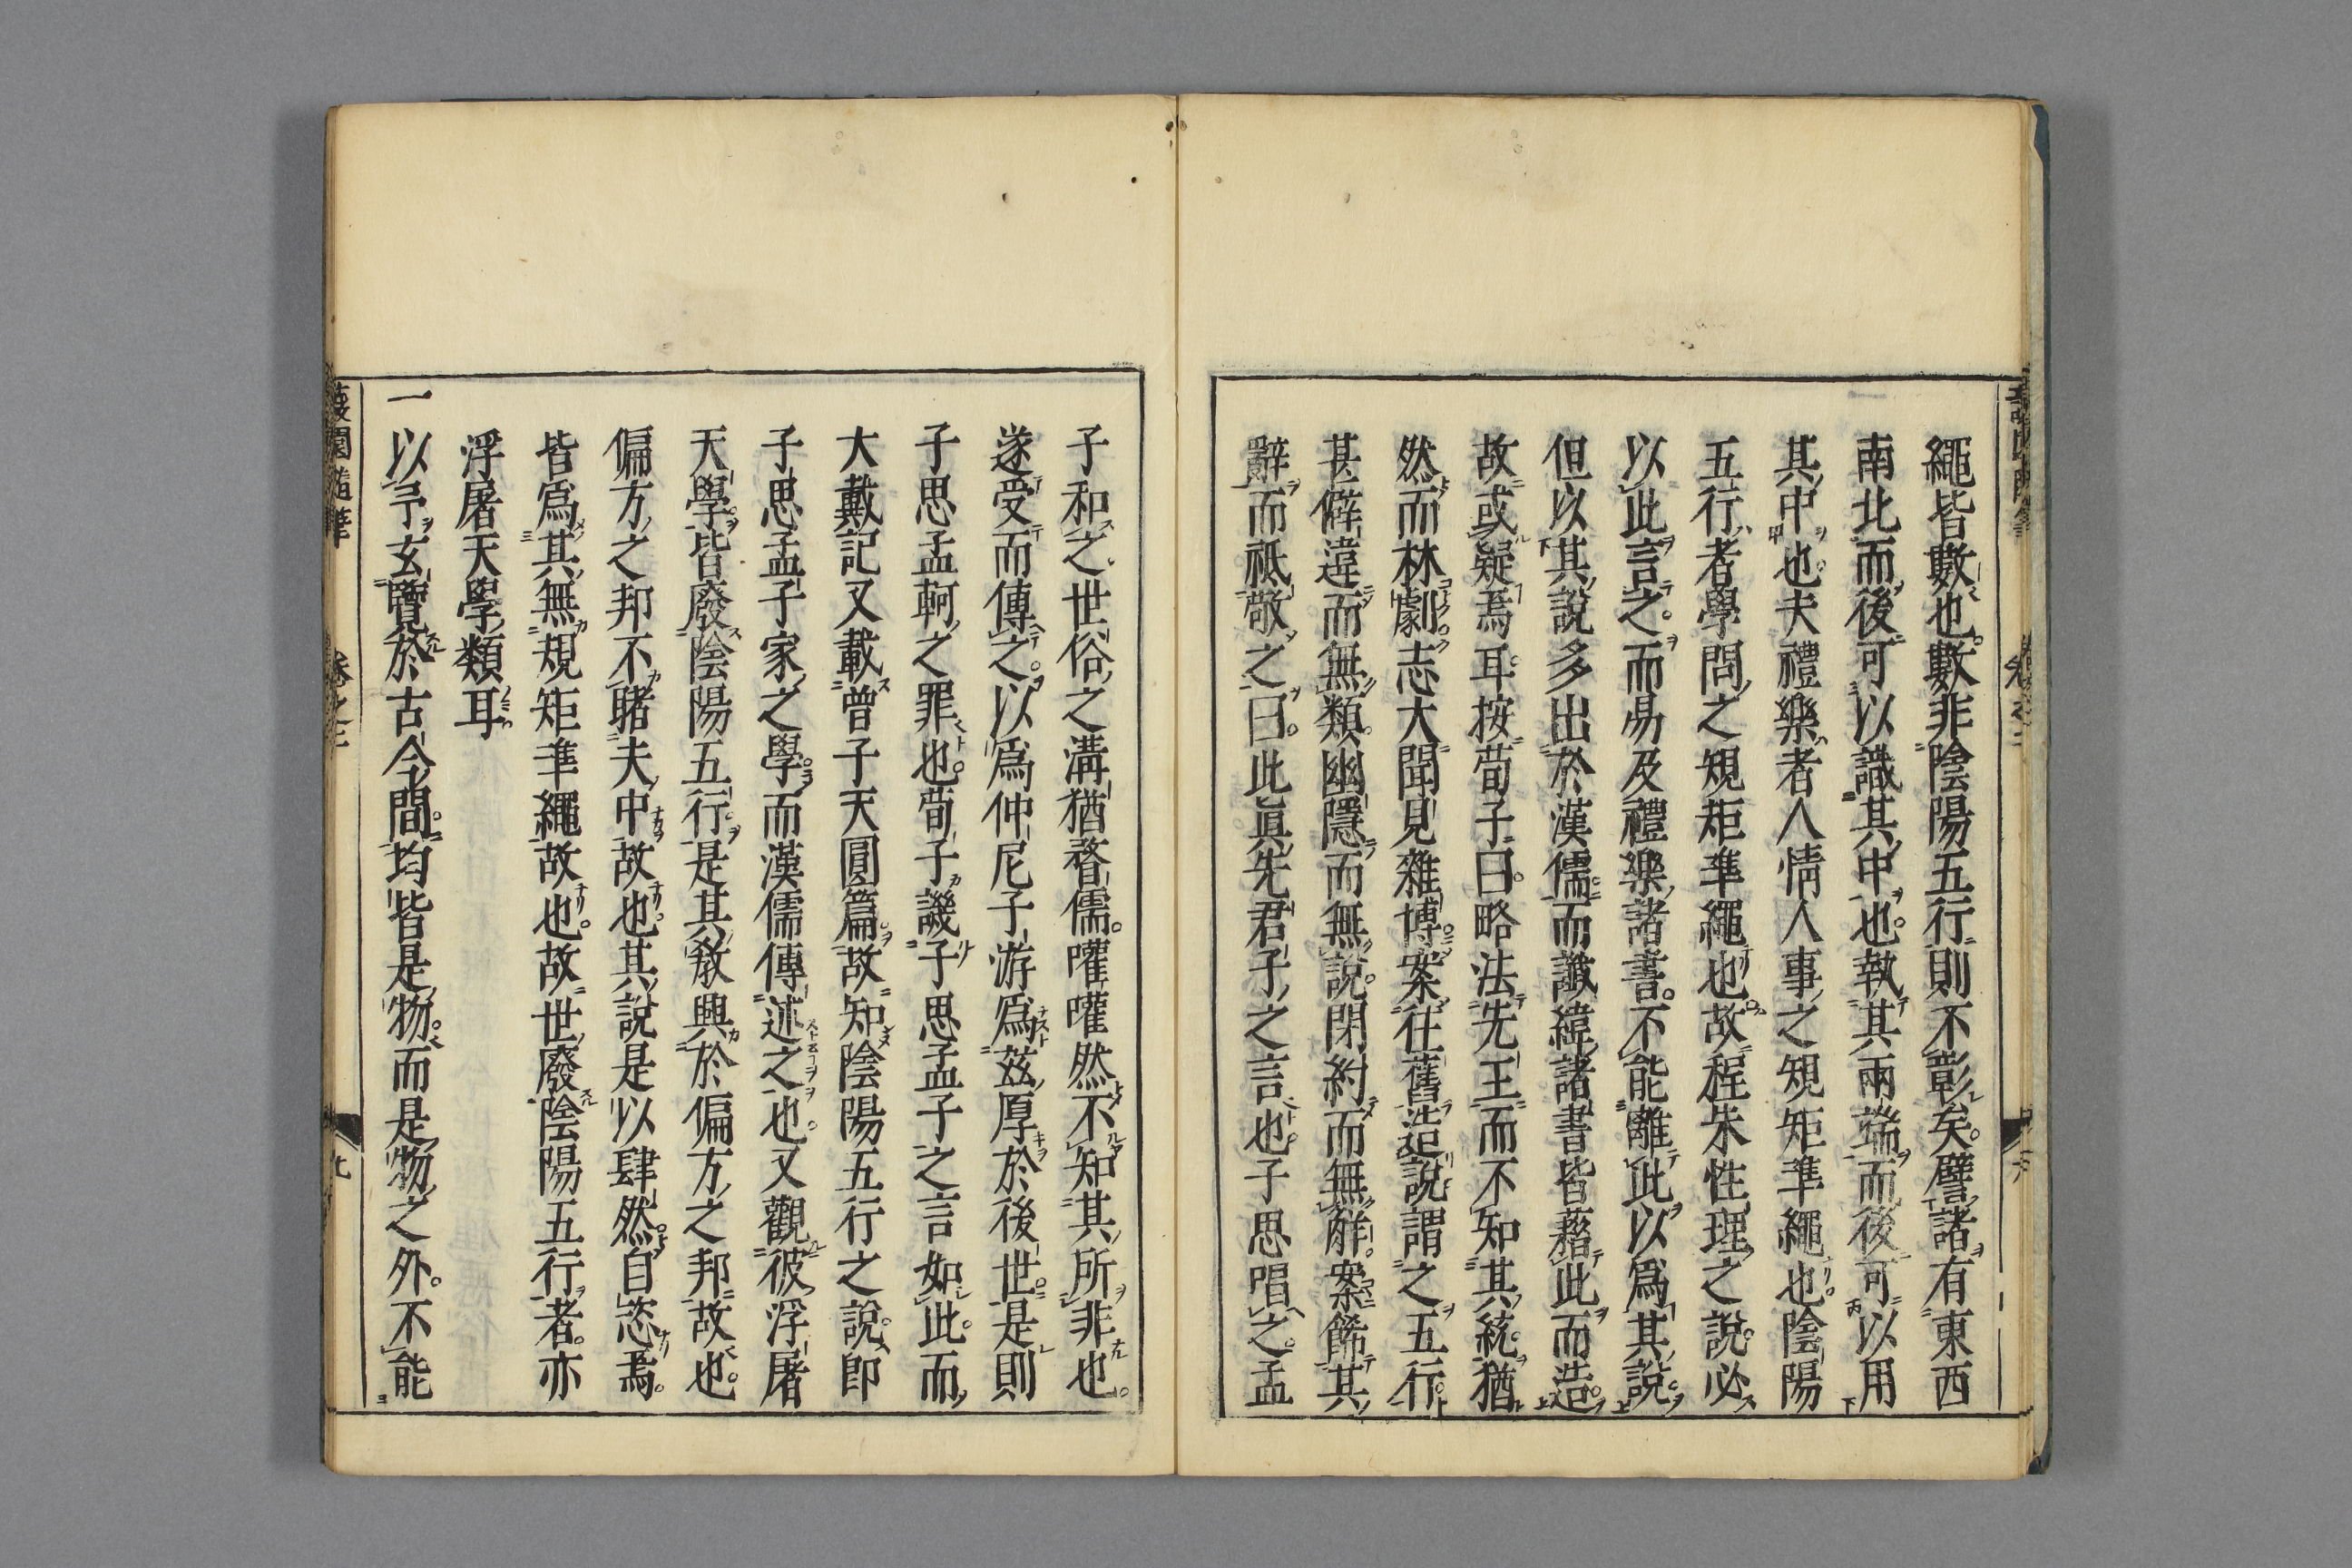 繩皆數也。數非陰陽五行則不彰矣。譬諸有東西
南北而後可以識其中也。執其兩端而後可以用
其中也。夫禮樂者人情人事之規矩準繩也。陰陽
五行者學問之規矩準繩也。故程朱性理之說。必
以此言之。而易及禮樂諸書。不能離此以爲其說。
但以其說多出於漢儒。而讖緯諸書皆藉此而造。
故或疑焉耳。按荀子曰。略法先王而不知其統。猶
然而材劇。志大聞見雜博。案往舊造說謂之五行。
甚僻違而無類。幽隱而無說。閉約而無解。案飾其
辭而祗敬之曰。此眞先君子之言也。子思唱之。孟
子和之。世俗之溝猶瞀儒。嚾嚾然不知其所非也。
遂受而傳之。以爲仲尼子游爲茲厚於後世。是則
子思孟軻之罪也。荀子譏子思孟子之言如此。而
大戴記又載曾子天圓篇。故知陰陽五行之說。卽
子思孟子家之學。而漢儒傳述之也。又觀彼浮屠
天學。皆廢陰陽五行。是其敎興於偏方之邦故也。
偏方之邦不睹夫中故也。其說是以肆然。自恣焉。
皆爲其無規矩準繩故也。故世廢陰陽五行者。亦
浮屠天學類耳
一以予玄覽於古今間。均皆是物。而是物之外。不能
蘐園隨筆 卷之二